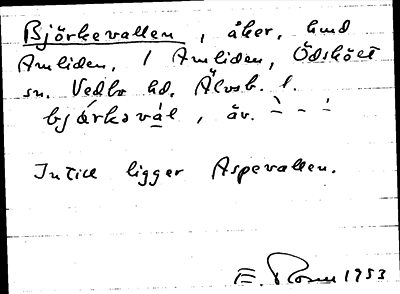 Björkevallen, åker, hmd
Amliden, 1 Amliden, Ödskölt
sn. Vedbo hd. Älvsb. l.
bjœrkəvál, äv. ` – ´
Intill ligger Aspevallen.
E. Rosén 1953